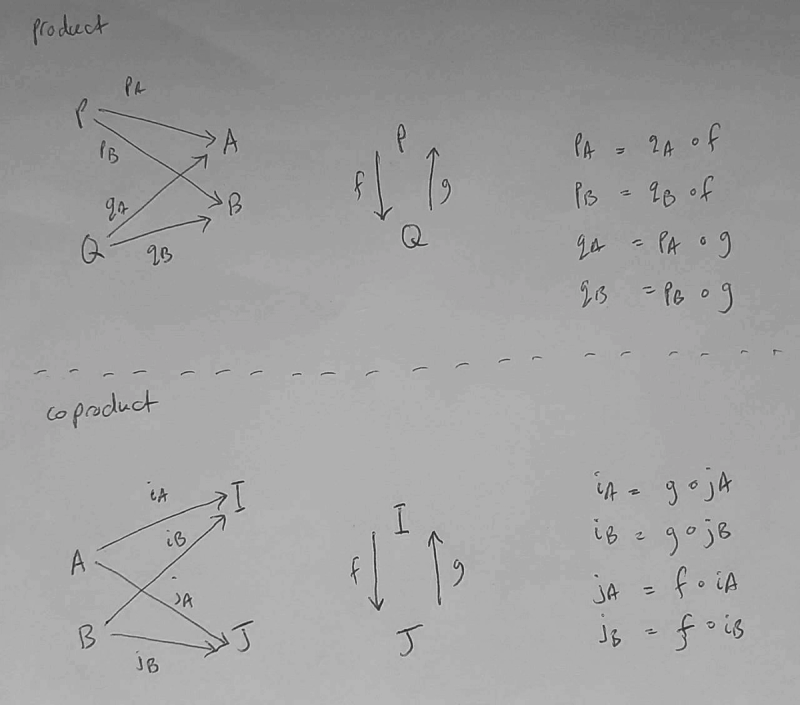 product
pA
P
A
pB
qA
B
Q
qB
P
f
g
Q
pA = qA ∘ f
pB = qB ∘ f
qA = pA ∘ g
qB = pB ∘ g
coproduct
iA
I
iB
A
jA
B
J
jB
I
f
g
J
iA = g ∘ jA
iB = g ∘ jB
jA = f ∘ iA
jB = f ∘ iB